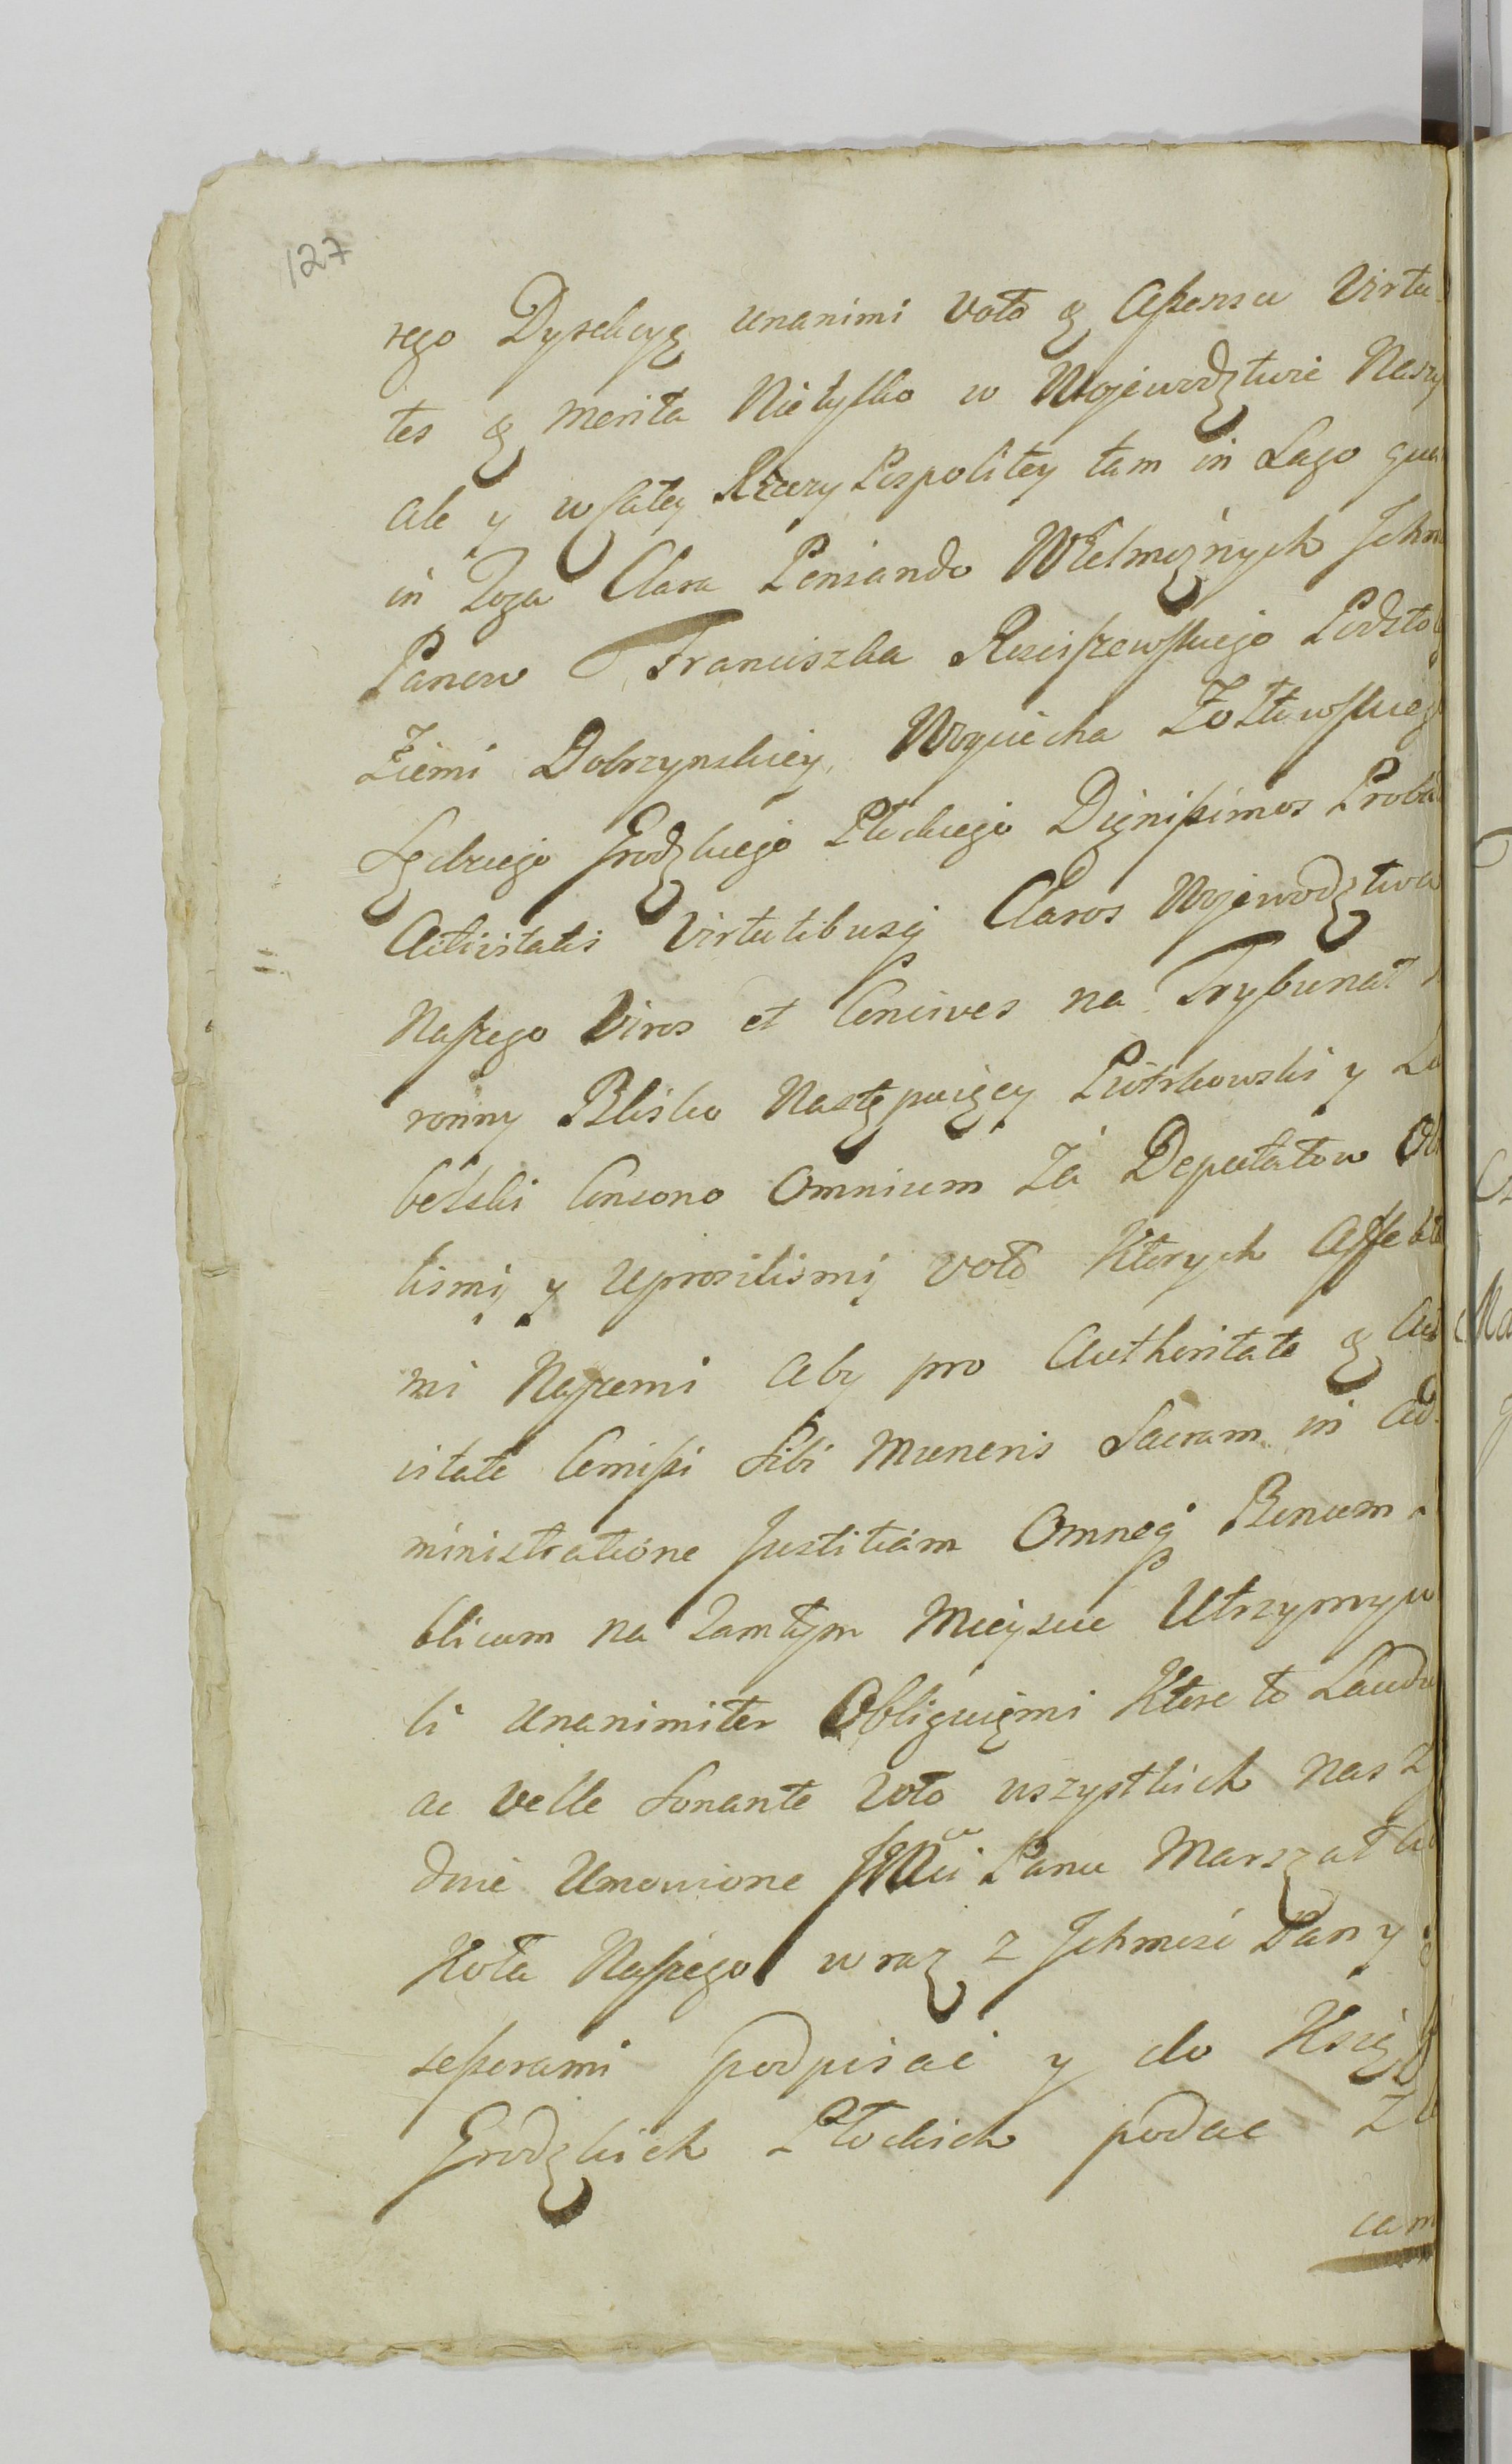 127
rego Dyrekcyą unanimi voto & Assensu Virtu
tes & merita Nietylko w Wojewodztwie Naszy
ale y w całey Rzeczy Pospolitey tam in Sago qua
in Toga Clara Pensando Wielmożnych Jchm
Panow Franciszka Rosciszewskiego Podsto
Ziemi Dobrzynskiey, Woyciecha Zołtowskieg
Sędziego Grodzkiego Płockiego Dignissimos Proba
Activitatis Virtutibusq Claros Wojewodztwa
Naszego Viros et Concives na Trybunał
ronny Blisko Następuiący Piotrkowski y Lu
belski Consono Omnium Za Deputatow Ob
lismy y Uprosilismy voto Ktorych Affekta
mi Naszemi aby pro Authoritate & Act
vitate Comissi Sibi Muneris Sacram in Ad
ministratione Justitiam Omneq Bonum
blicum na Tamtym Mieyscu Utrzymyw
li Unanimiter Obliguiemi Ktore to Laudu
ac velle Sonante Voto wszystkich nas z
dnie Umowione JMci Panu Marszałko
Koła Naszego wraz z Jchmosć Pany
sessorami podpisać y do Xsiąg
Grodzkich Płockich podać Zl
cam